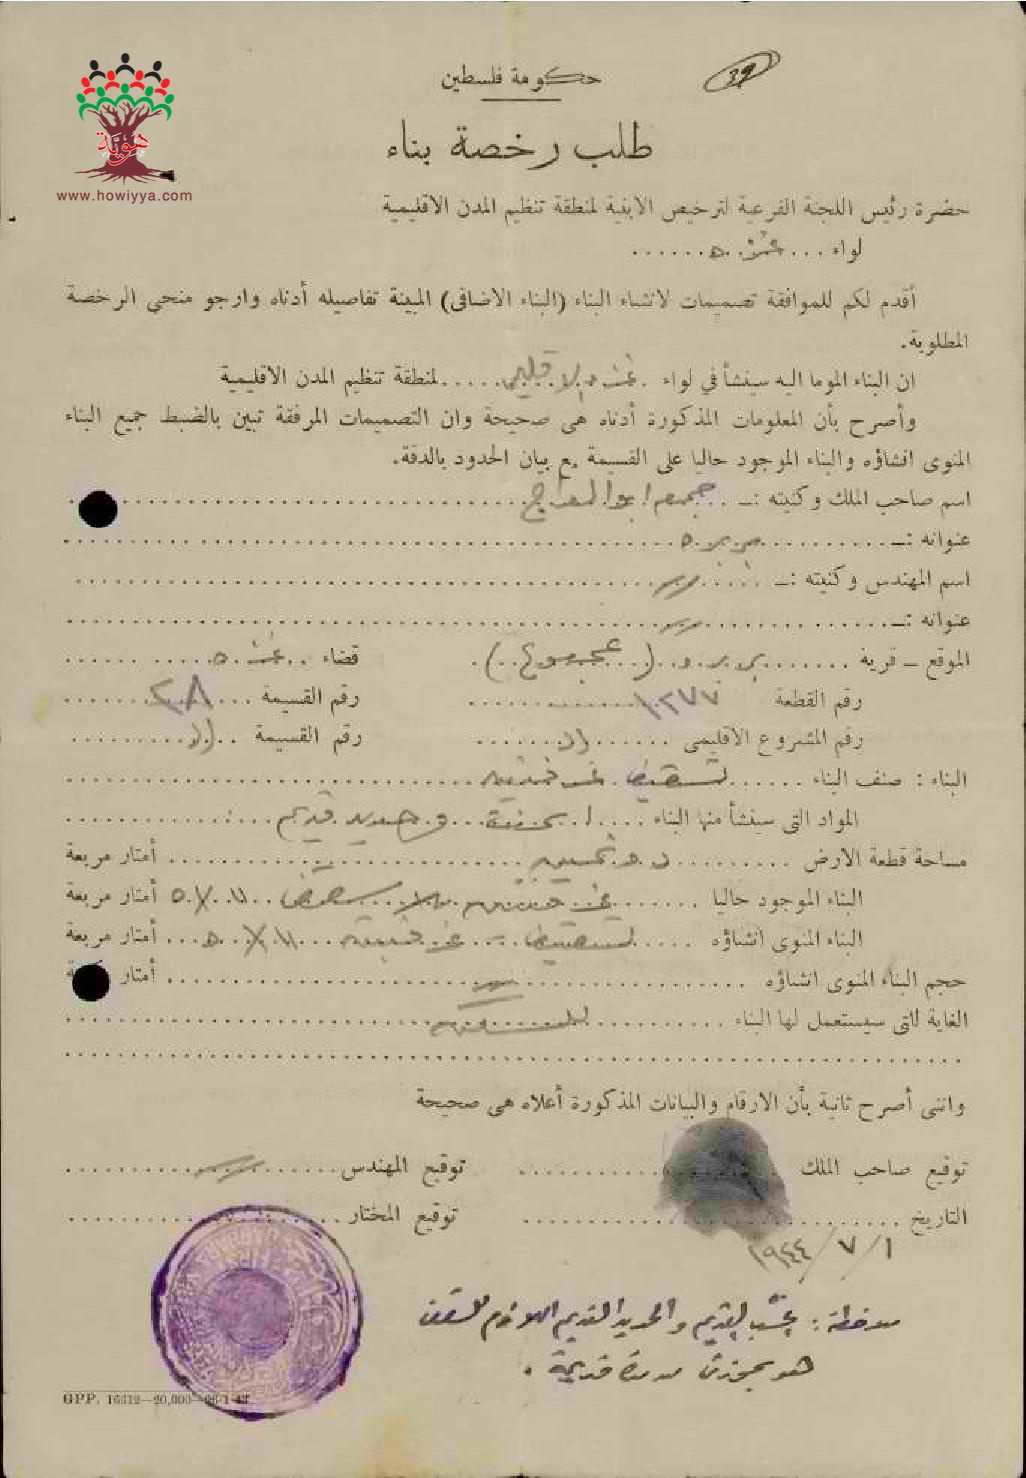 39
حكومة فلسطين
طلب رخصة بناء
هوية
www.howiyya.com
حضرة رئيس اللجنة الفرعية لترخيص الابنية لمنطقة تنظيم المدن الاقليمية
لواء ... غزة ......
أقدم لكم للموافقة تصميمات لانشاء البناء (البناء الاضافى) المبينة تفاصيله أدناه وارجو منحي الرخصة
المطلوبة.
ان البناء الموما اليه سينشأ في لواء . غزة الاقليمي ..... لمنطقة تنظيم المدن الاقليمية
وأصرح بأن المعلومات المذكورة أدناه هى صحيحة وان التصميمات المرفقة تبين بالضبط جميع البناء
المنوى انشاؤه والبناء الموجود حاليا على القسيمة مع بيان الحدود بالدقة.
اسم صاحب الملك وكنيته :ـ .. جمعه ابو
عنوانه :ـ بربره
اسم المهندس وكنيته :ـ
عنوانه :ـ
الموقع ـ قرية ....... بربره ..( ) . قضاء .. غزة
رقم القطعة ١٠٢٧٧ رقم القسيمة ... ٢٠٨
رقم المشروع الاقليمى ...... رقم القسيمة ..
البناء : صنف البناء ...... تسقيف غرفتين
المواد التى سينشأ منها البناء .... وحديد قديم
مساحة قطعة الارض ......... أمتار مربعة
البناء الموجود حاليا ....... غرفتين بلا سقف .. أمتار مربعة
البناء المنوى انشاؤه ..... تسقيف ... أمتار مربعة
حجم البناء المنوى انشاؤه ......... أمتار
الغاية لتى سيستعمل لها البناء .......... للسكن
وانى أصرح ثانية بأن الارقام والبيانات المذكورة أعلاه هى صحيحة
توقيع صاحب الملك ........ توقيع المهندس
التاريخ ........ توقيع المختار
١/ ٧ / ١٩٤٤
ملاحظة : القديم والحديد القديم اللازم للسقف
هو بحوزتى من مدة قديمة .
GPP. 16312—20,000—26-1-43